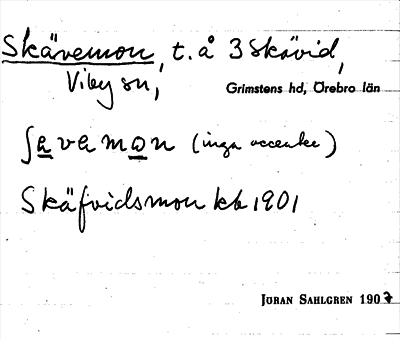 Skävemon, t. å 3 Skävid,
Viby sn,
Grimstens hd, Örebro län
ʃavamon (inga accenter)
Skäfvidsmon kb 1901
JÖRAN SAHLGREN 1907